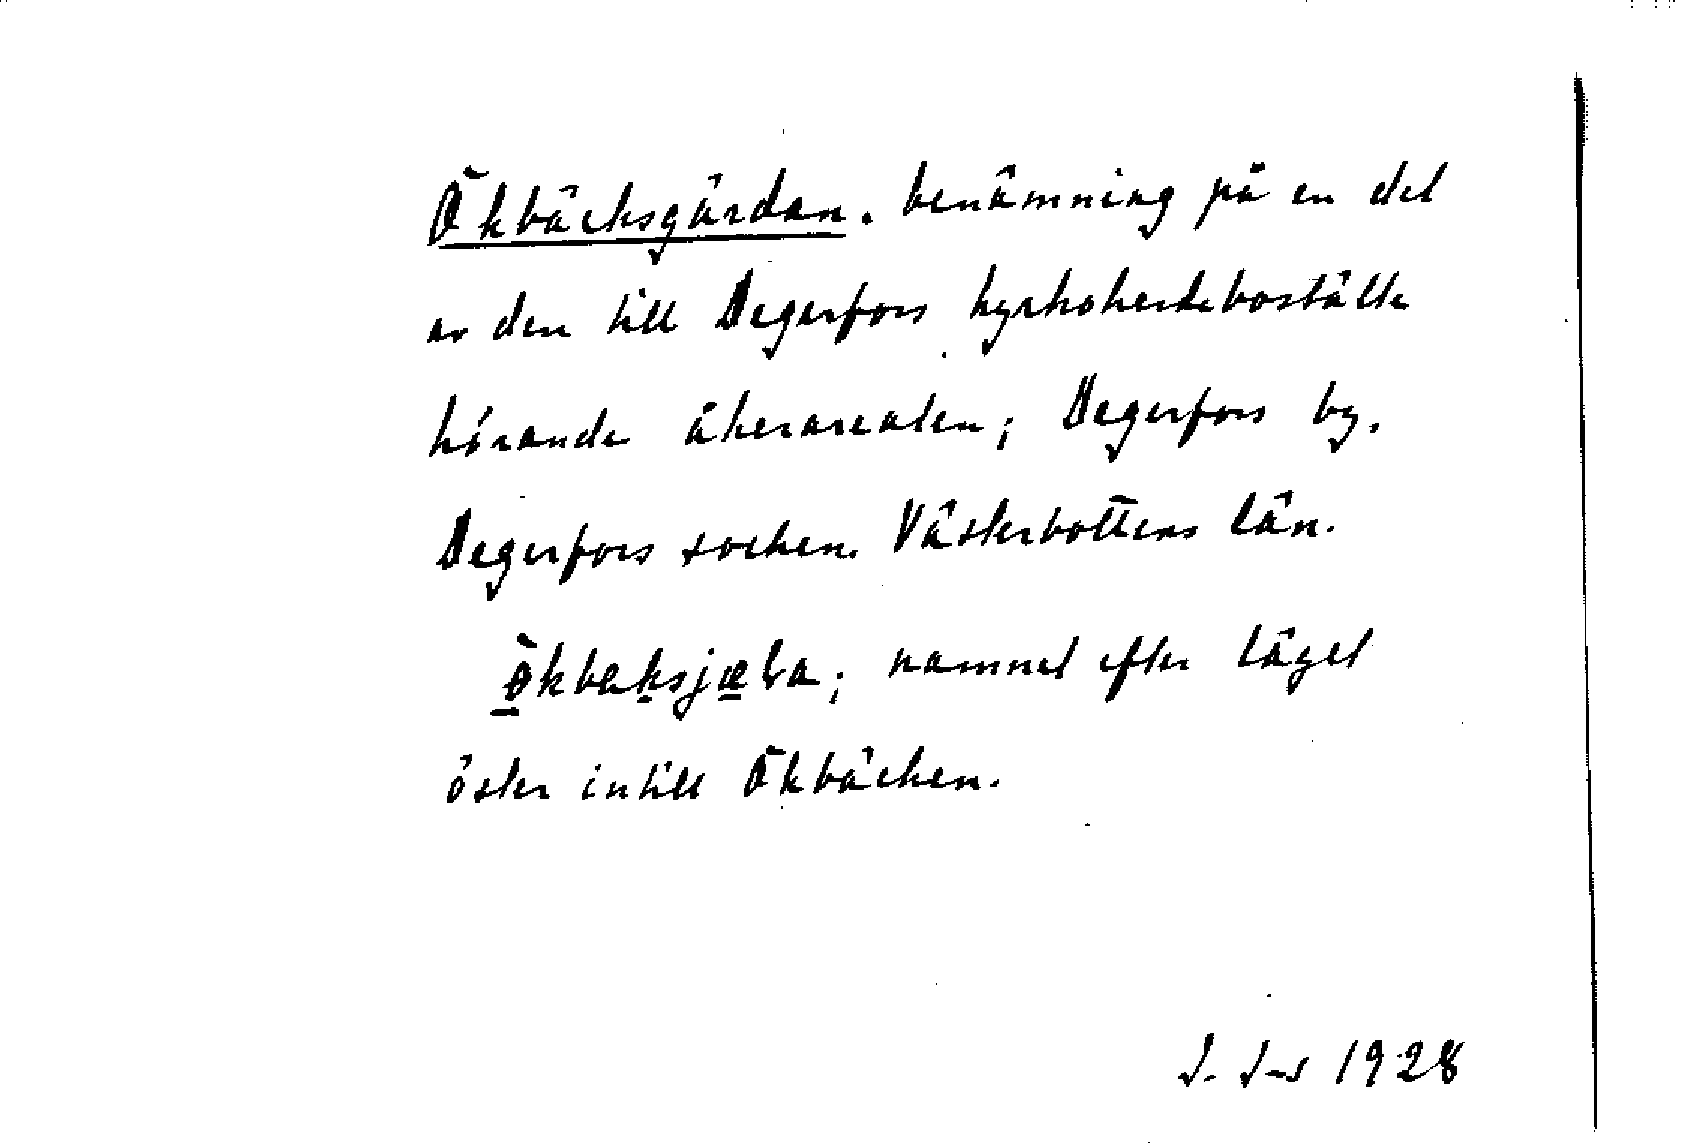 Ökbäcksgärdan. benämning på en del
av den till Degerfors kyrkoherdeboställe
hörande åkerarealen; Degerfors by.
Degerfors socken. Västerbottens län.
ökbaksjæḷa; namnet efter läget
öster intill Ökbäcken.
1928